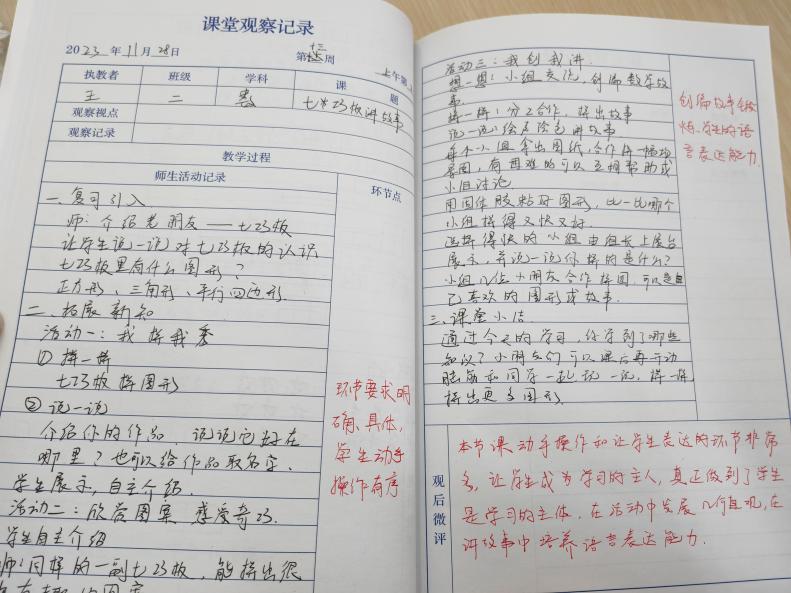 课堂观察记录
2023年11月28日 第十三周 上午第
执教者 班级 学科 课题
王 二 数 七巧板讲故事
观察视点
观察记录
教学过程
师生活动记录 环节点
一、复习引入
师:介绍老朋友——七巧板
让学生说一说对七巧板的认识
七巧板里有什么图形?
正方形、三角形、平行四边形.
二、拓展新知
活动一:我拼我秀
① 拼一拼
七巧板拼图形
② 说一说
介绍你的作品,说说它好在
哪里?也可以给作品取名字.
学生展示,自主介绍.
活动二:欣赏图案 感受奇巧.
学生自主介绍
师:同样的一副七巧板,能拼出很
环节要求明
确、具体,
学生动手
操作有序
活动三:我创我讲.
想一想:小组交流,创编数学故
事.
拼一拼:分工合作,拼出故事
说一说:绘声绘色讲故事.
每个小组拿出图纸,合作拼一幅
图,有困难的可以互相帮助或
小组讨论.
用固体胶粘好图形,比一比哪个
小组拼得又快又好.
选拼得快的小组由组长上展台
展示,并说一说你拼的是什么?
小组几位小朋友合作拼图,可以是自
己喜欢的图形或故事.
三、课堂小结
通过今天的学习,你学到了哪些
知识?小朋友们可以课后再动动
脑筋和同学一起玩一玩,拼一拼
拼出更多图形.
创编故事锻
炼学生的语
言表达能力.
观后微评
本节课动手操作和让学生表达的环节非常
多,让学生成为学习的主人,真正做到了学生
是学习的主体.在活动中发展几何直观,在
讲故事中培养语言表达能力.